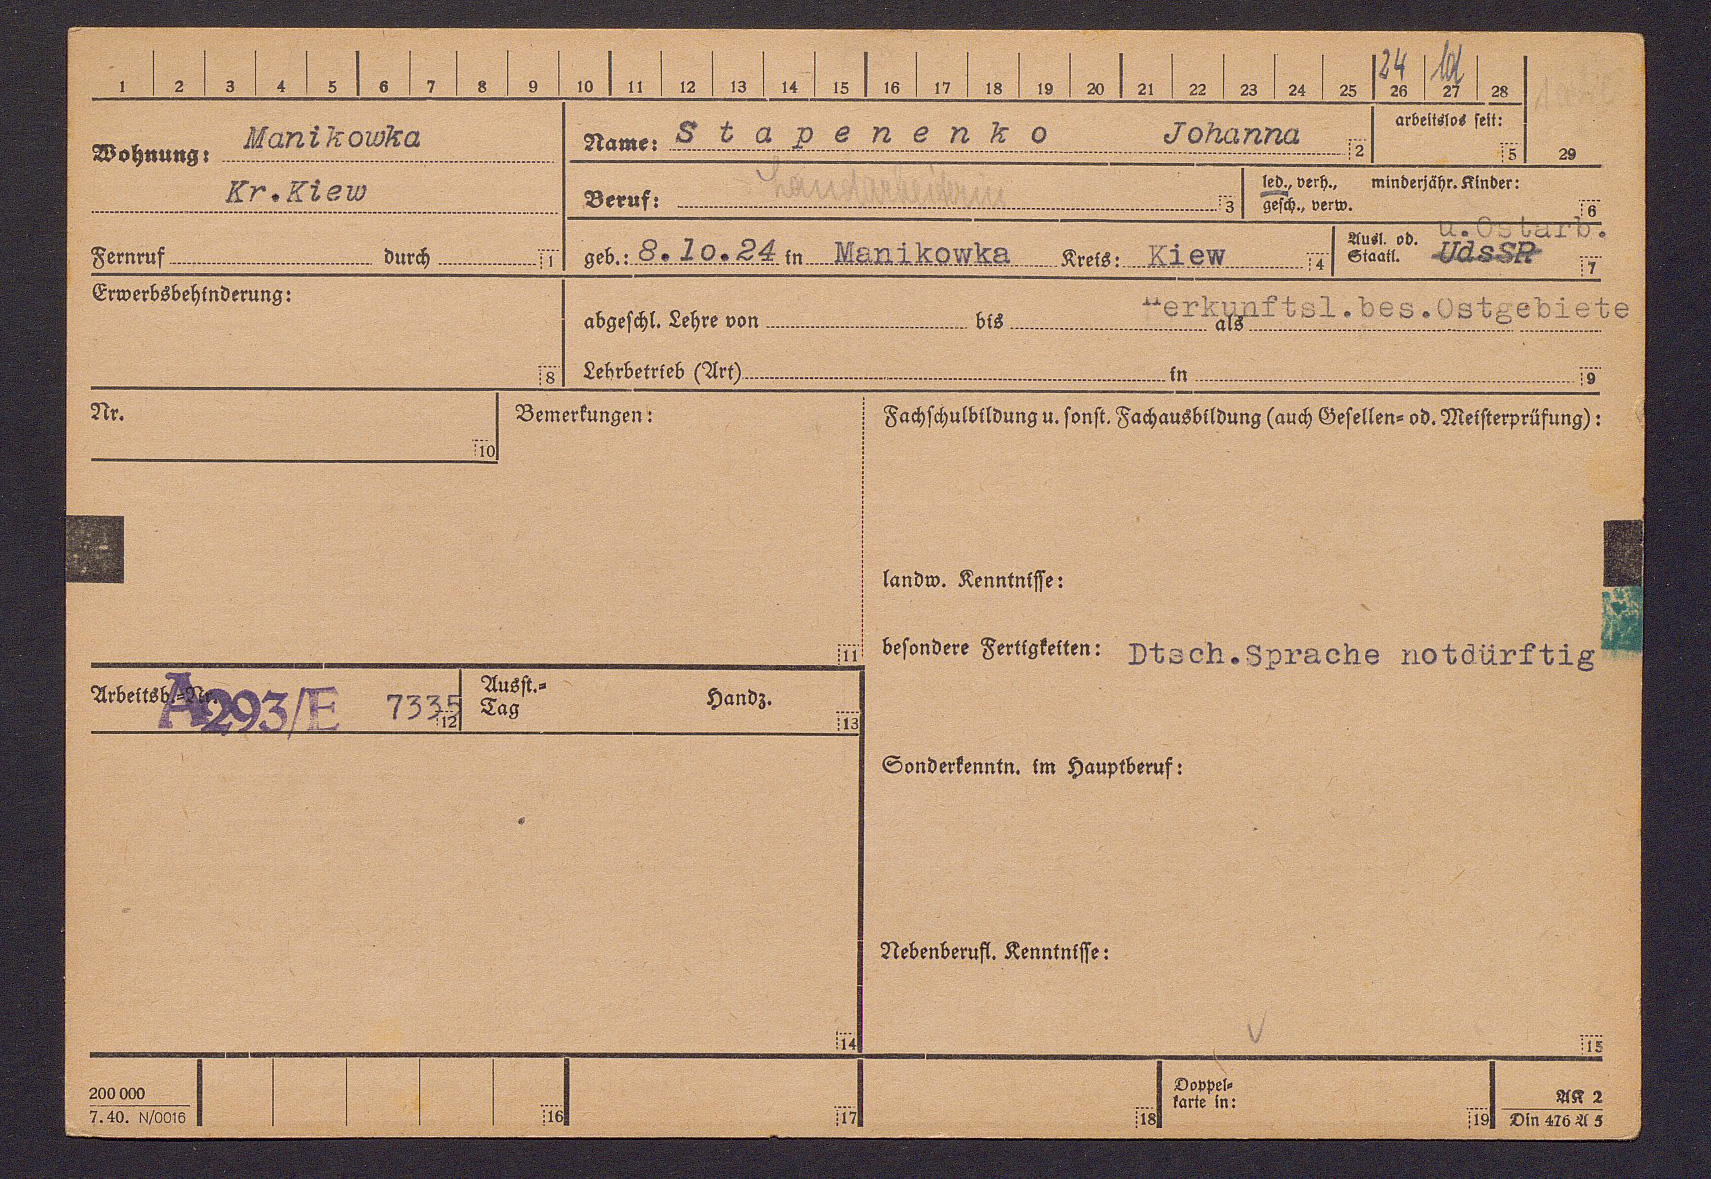 24 
1 2 3 4 5 6 7 8 9 10 11 12 13 14 15 16 17 18 19 20 21 22 23 24 25 26 27 28
Wohnung: Manikowka
Kr.Kiew
Fernruf durch 1
Name: S t a p e n e n k o Johanna 2
arbeitslos seit: 5
29
Beruf: Landarbeiterin 3
led., verh., minderjähr. Kinder:
gesch., verw. 6
geb.: 8.10.24 in Manikowka Kreis: Kiew 4
u.Ostarb.
Ausl. od. UdsSR
Staatl. 7
Erwerbsbehinderung:
8
erkunftsl.bes.Ostgebiete
abgeschl. Lehre von bis als
Lehrbetrieb (Art) in 9
Nr.
10
Bemerkungen:
11
Fachschulbildung u. sonst. Fachausbildung (auch Gesellen- od. Meisterprüfung):
landw. Kenntnisse:
besondere Fertigkeiten: Dtsch.Sprache notdürftig
Arbeitsb.-Nr. A293/E 7335 12
Ausst.-
Tag Handz. 13
Sonderkenntn. im Hauptberuf:
Nebenberufl. Kenntnisse:
14
15
200 000
7. 40. N/0016
16 17 18
Doppel-
karte in: 19
AK 2
Din 476 A 5